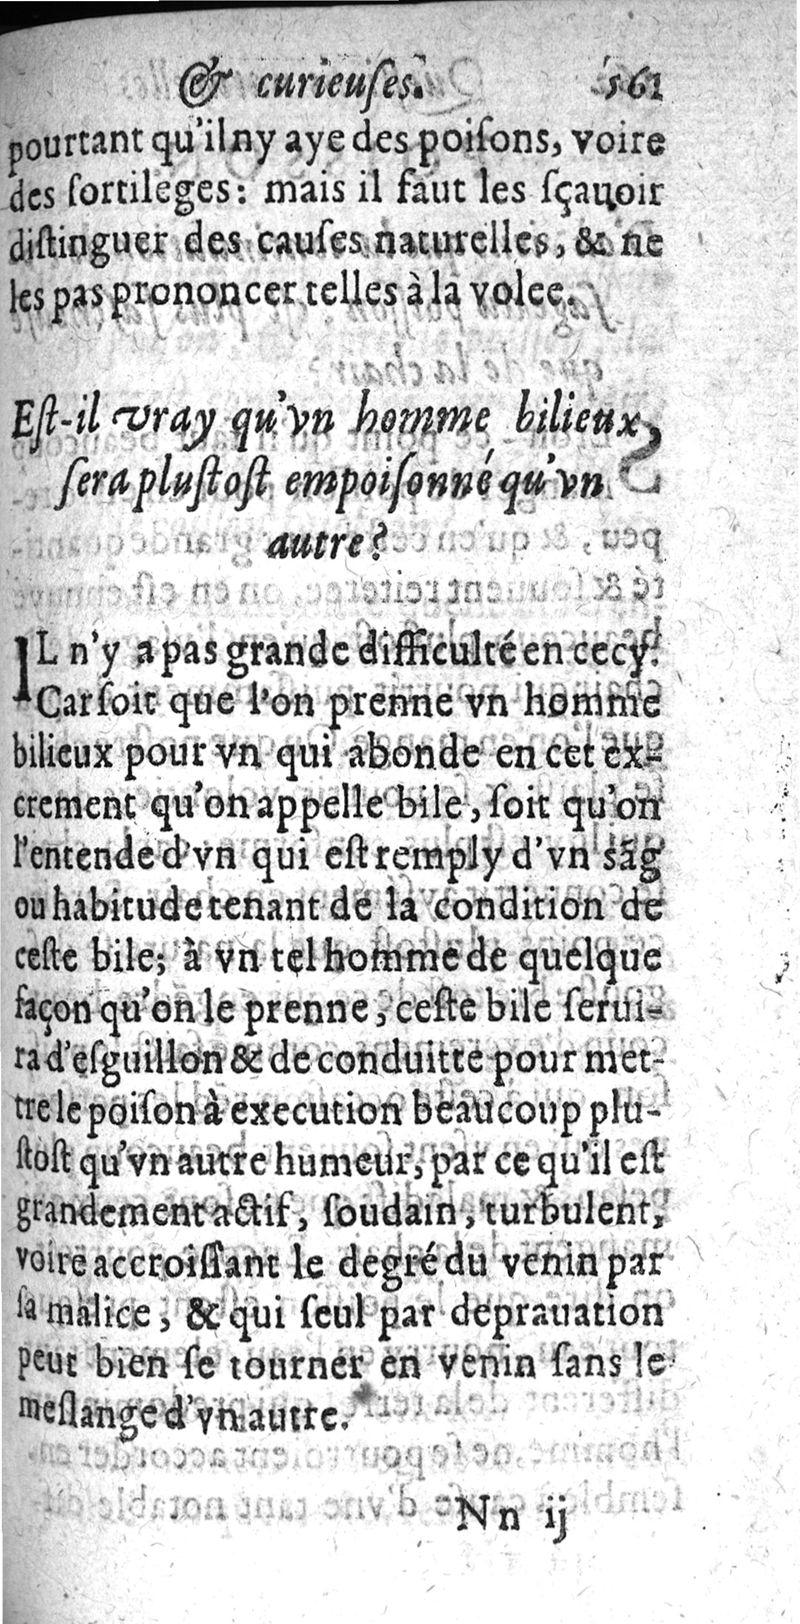 & curieuſes. 561
pourtant qu'il ny aye des poiſons, voire
des ſortileges: mais il faut les ſçauoir
diſtinguer des cauſes naturelles, & ne
les pas prononcer telles à la volee.
Eſt-il vray qu'vn homme bilieux
ſera pluſtoſt empoiſonné qu'vn
autre?
IL n'y a pas grande difficulté en cecy.
Car ſoit que l'on prenne vn homme
bilieux pour vn qui abonde en cet ex-
crement qu'on appelle bile, ſoit qu'on
l'entende d'vn qui eſt remply d'vn sãg
ou habitude tenant de la condition de
ceſte bile; à vn tel homme de quelque
façon qu'on le prenne, ceſte bile ſerui-
ra d'eſguillon & de conduitte pour met-
tre le poiſon à execution beaucoup plu-
ſtoſt qu'vn autre humeur, par ce qu'il eſt
grandement actif, ſoudain, turbulent,
voire accroiſſant le degré du venin par
ſa malice, & qui ſeul par deprauation
peut bien ſe tourner en venin ſans le
meſlange d'vn autre.
Nn ij